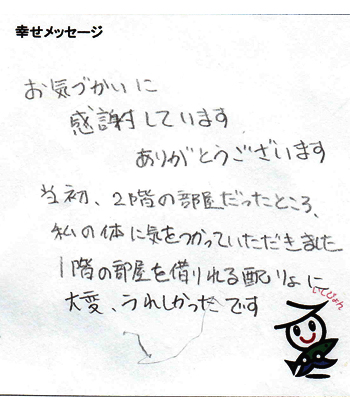 幸せメッセージ
お気づかいに
感謝しています
ありがとうございます
当初、2階の部屋だったところ、
私の体に気をつかっていただきました
1階の部屋を借りれる配りょに
大変、うれしかったです